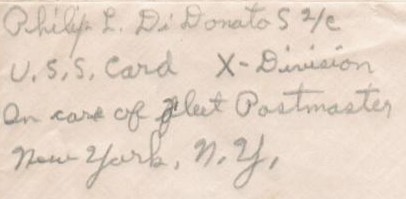 Philip L. Di Donato S 2/c
U.S.S. Card X-Division
In care of Fleet Postmaster
New York, N.Y,